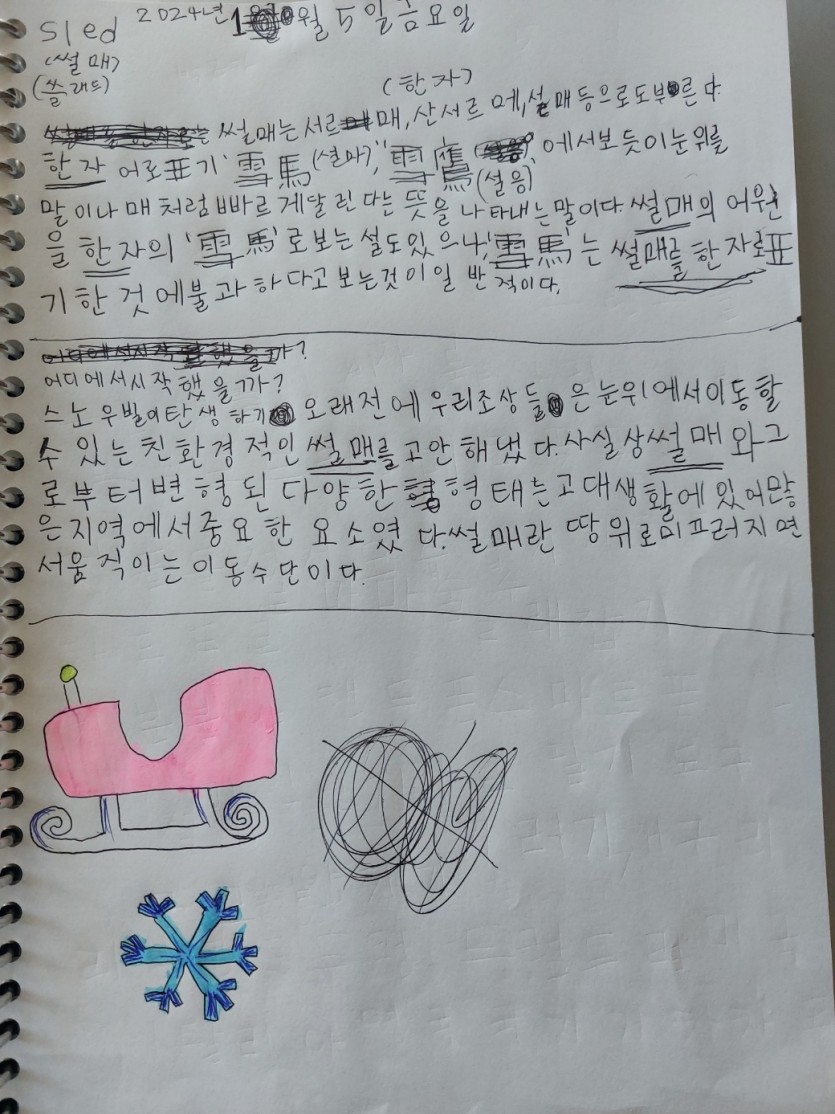 sled 2024년 1월 5일 금요일
(썰매)
(쓸래드)
(한자)
썰매는 서르매, 산서르메, 설매 등으로도 부른다.
한자 어로표기 '雪馬(설마)', '雪鷹(설응)'에서보듯이 눈위를
말이나 매처럼 빠르게달린다는 뜻을 나타내는 말이다. 썰매의 어원
을 한자의 '雪馬'로보는 설도있으나, '雪馬'는 썰매를 한자로표
기한 것에불과하다고 보는것이일반적이다.
어디에서시작했을까?
스노우빌이탄생하기 오래전에 우리조상들은 눈위에서이동할
수 있는 친환경적인 썰매를 고안해냈다. 사실상썰매와그
로부터변형된 다양한 형태는 고대생활에 있어많
은지역에서중요한 요소였다. 썰매란 땅위로미끄러지면
서움직이는 이동수단이다.